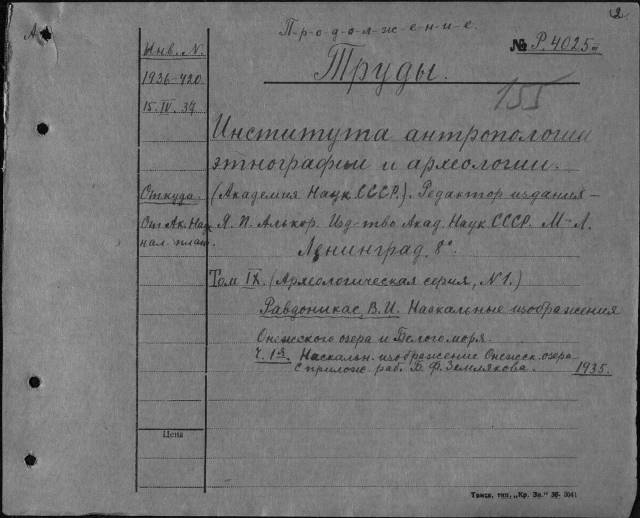 2
П-р-о-д-о-л-ж-е-н-и-е.
А
Инв. N.
№ Р. 4025
1936-420
Труды.
15.IV.37
155
Института антропологии
этнографии и археологии.
Откуда.
(Академия Наук СССР). Редактор издания –
От Ак. Нау
Я. П. Алькор. Изд-тво Акад. Наук СССР. М-Л.
нал. плат.
Ленинград. 8°
Том IX. (Археологическая серия, N 1.)
Равдоникас, В.И. Наскальные изображения
Онежского озера и Белого моря.
Ч. 1я. Наскальн. изображение Онежск. озера
с прилож. раб. Б. Ф. Землякова. 1935.
Цена
Томск, тип. „Кр. Зн." 36- 3041